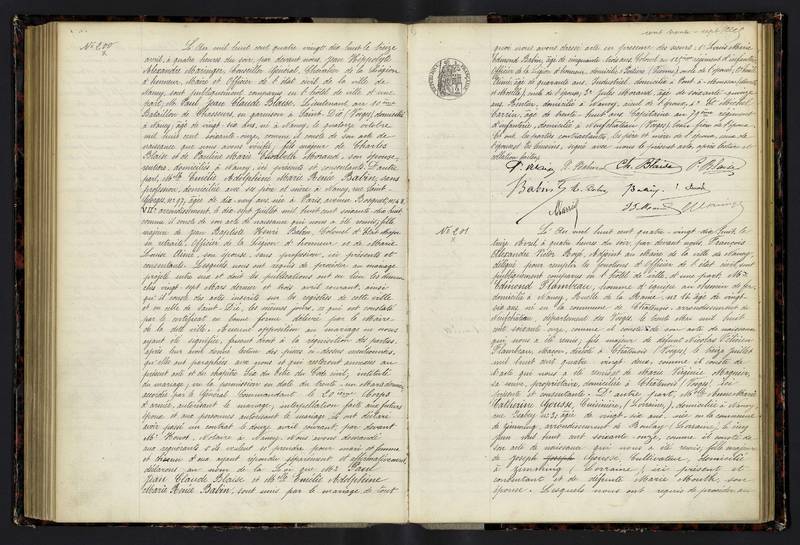 N° 200
L'An mil huit cent quatre vingt dix huit le seize
avril, à quatre heures du soir, par devant nous, Jean Hippolyte
Alexandre Maringer, Conseiller Général, Chevalier de la Légion
d'honneur, Maire et Officier de l'état civil de la ville de
Nancy, sont publiquement comparus en l'hôtel de ville d'une
part, Mr Paul Jean Claude Blaise, Lieutenant au 10ème
Bataillon de Chasseurs, en garnison à Saint-Dié (Vosges), domicilié
à Nancy, âgé de vingt six ans, né à Nancy, le quatorze octobre
mil huit cent soixante onze, comme il conste de son acte de
naissance que nous avons vérifié, fils majeur de Charles
Blaise et de Pauline Marie Elisabeth Morand, son épouse,
rentiers, domiciliés à Nancy, ici présents et consentants. D'autre
part, Mlle Emélie Adolphine Marie Renée Babin, sans
profession, domiciliée avec ses père et mère à Nancy, rue Saint
Georges, n° 97, âgée de dix-neuf ans, née à Paris, avenue Bosquet,
VIIe arrondissement, le dix sept juillet mil huit cent soixante dix huit
comme il conste de son acte de naissance qui nous a été remis, fille
majeure de Jean Baptiste Henri Babin, Colonel d'Etat-Major
en retraite, Officier de la Légion d'honneur et de Marie
Louise Aimé, son épouse, sans profession, ici présents et
consentants. Lesquels nous ont requis de procéder au mariage
projeté entre eux et dont les publications ont eu lieu les diman-
ches vingt sept Mars dernier et trois avril courant, ainsi
qu'il conste des actes inscrits sur les registres de cette ville
et en celle de Saint Dié, les mêmes jours, ce qui est constaté
par le certificat en bonne forme délivré par le Maire
de la dite ville. Aucune opposition au mariage ne nous
ayant été signifiée, faisant droit à la réquisition des parties,
après leur avoir donné lecture des pièces ci-dessus mentionnées,
qu'elles ont paraphées avec nous et qui resteront annexées au
présent acte et du chapitre Six du titre du Code civil, intitulé
du mariage, vu la permission en date du trente-un Mars dernier,
accordée par le Général Commandant le 20ème Corps
d'armée, autorisant le mariage, interpellation faite aux futurs
époux et aux personnes autorisant le mariage, ils ont déclaré
avoir passé un contrat le douze avril courant, par devant
Me Houot, Notaire à Nancy. Nous avons demandé
aux requérants s'ils veulent se prendre pour mari et femme
et chacun d'eux ayant répondu séparément et affirmativement
déclarons au nom de la Loi que Mr Paul
Jean Claude Blaise et Mlle Emélie Adolphine
Marie Renée Babin, sont unis par le mariage, de tout
cent trente-sept
quoi nous avons dressé acte en présence des sieurs: 1° Louis Marie
Edmond Babin, âgé de cinquante trois ans, Colonel au 125ème régiment d'infanterie
Officier de la Légion d'honneur, domicilié à Poitiers (Vienne), oncle de l'épouse, 2°
Aimé, âgé de quarante ans, Industriel, domicilié à Pont-à-Mousson (Meurthe
et Moselle), oncle de l'épouse, 3° Jules Morand, âgé de soixante quinze
ans, Rentier, domicilié à Nancy, oncle de l'époux, 4° Michel
âgé de trente-huit ans, Capitaine au 79ème régiment
d'infanterie, domicilié à Neufchâteau (Vosges), cousin de l'époux.
Et ont les parties contractantes, les père et mère de l'époux, ceux de
l'épouse et les témoins, signé avec nous le présent acte, après lecture et
collation faites.
Ch. Blaise P. Blaise
Babin
N° 201
L'An mil huit cent quatre-vingt dix-huit, le
seize Avril à quatre heures du soir, par devant nous, François
Alexandre Victor Adjoint au Maire de la ville de Nancy,
délégué pour remplir les fonctions d'Officier de l'état civil, sont
publiquement comparus en l'hôtel de ville, d'une part, Mr
Edmond Flambeau, homme d'équipe au chemin de fer,
domicilié à Nancy, Ruelle de la Ravine, n° 16, âgé de vingt-
six ans, né en la commune de Chatenois, arrondissement de
Neufchâteau, département des Vosges, le trois Mai mil huit
cent soixante onze, comme il conste de son acte de naissance
qui nous a été remis, fils majeur de défunt Nicolas Félicien
Flambeau, Maçon, décédé à Chatenois (Vosges), le douze juillet
mil huit cent quatre vingt deux, comme il conste de
l'acte qui nous a été remis et de Marie Virginie Maguin,
sa veuve, propriétaire, domiciliée à Chatenois (Vosges), ici
présente et consentante. D'autre part, Mlle Anne Marie
Catherine Gousse, Cuisinière, (Lorraine), domiciliée à Nancy
rue n° 31, âgée de vingt-six ans, née en la commune
de Zimming, arrondissement de Boulay (Lorraine), le cinq
juin mil huit cent soixante onze, comme il conste de
son acte de naissance qui nous a été remis, fille majeure
de Joseph Gousse, Cultivateur, domicilié
à Zimming (Lorraine), ici présent et
consentant et de défunte Marie Mouth, son
épouse. Lesquels nous ont requis de procéder au